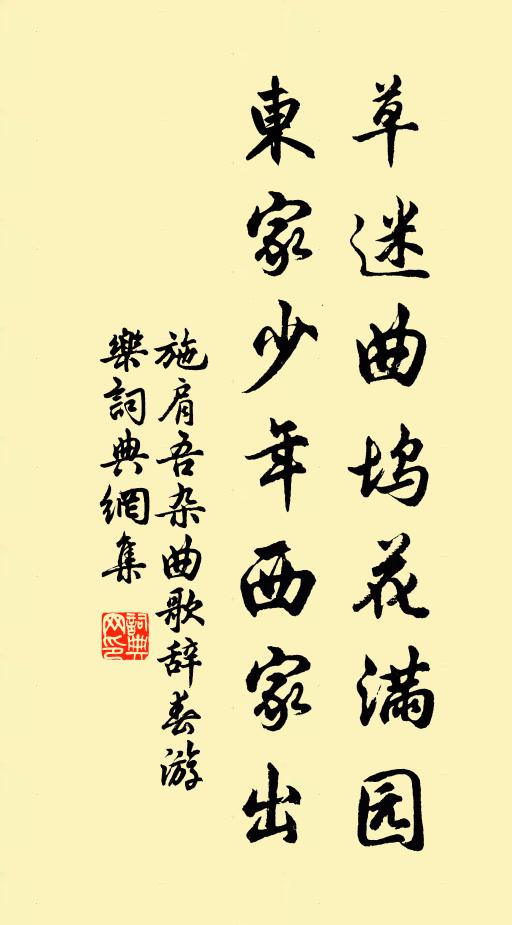 草迷曲坞花满园
東家少年西家出
施肩吾杂曲歌辞春游
樂詞典網集
詞典网印